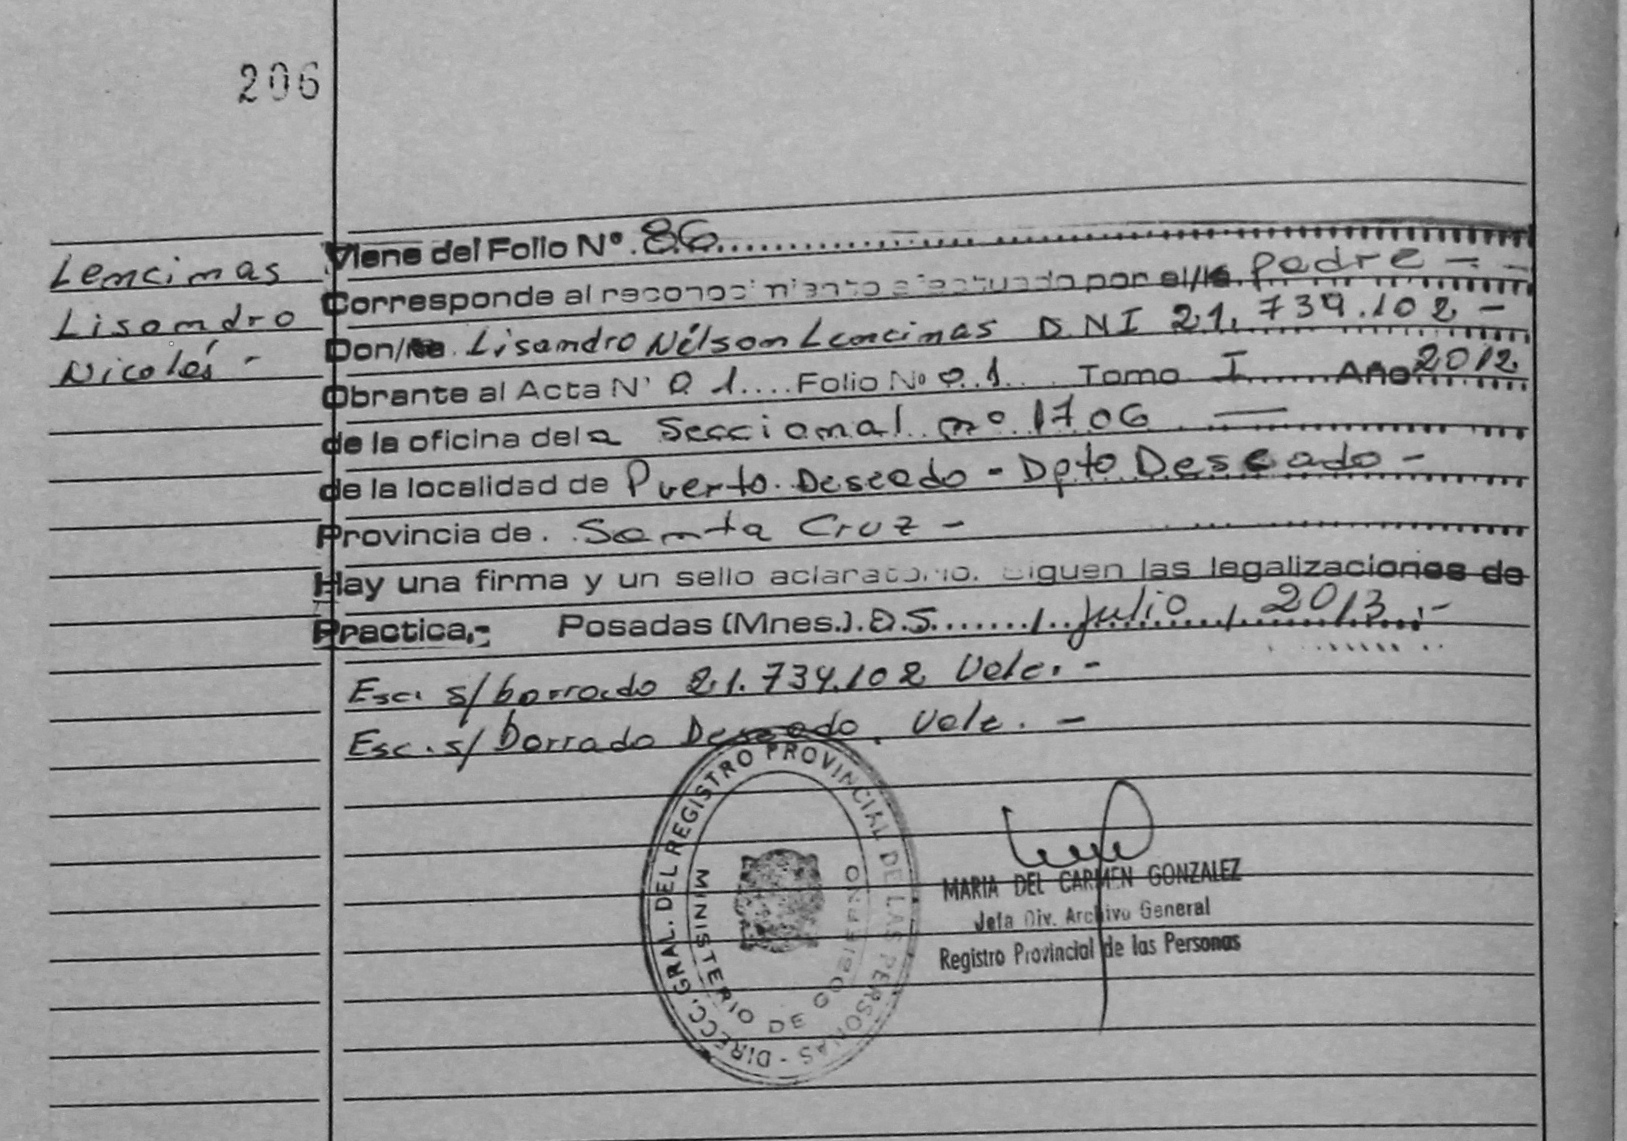 206
Lencinas
Lisandro
Nicolás -
Viene del Folio Nº. 86
Corresponde al reconocimiento efectuado por el/la padre - -
Don/ña. Lisandro Nélson Lencinas D N I 21.739.102 -
Obrante al Acta Nº 01 .... Folio Nº 01 ... Tomo I ..... Año 2012
de la oficina de la Seccional nº 1706 —
de la localidad de Puerto Deseado - Dpto Deseado -
Provincia de . . Santa Cruz -
Hay una firma y un sello aclaratorio. Siguen las legalizaciones de
Practica,- Posadas (Mnes.). 05....../. julio ./. 2013...-
Esc. s/ borrado 21.739.102 Vale. -
Esc. s/ borrado Deseado. Vale. -
DIRECC. GRAL. DEL REGISTRO PROVINCIAL DE LAS PERSONAS -
MINISTERIO DE GOBIERNO
MARIA DEL CARMEN GONZALEZ
Jefa Div. Archivo General
Registro Provincial de las Personas